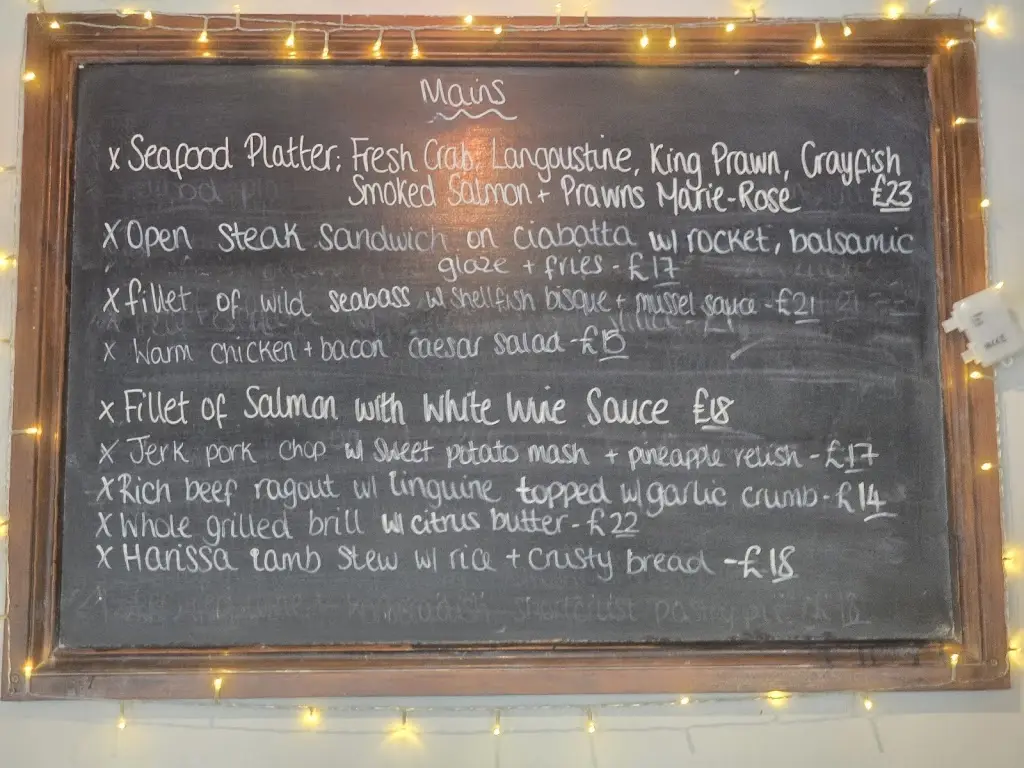 Mains
x Seafood Platter; Fresh Crab, Langoustine, King Prawn, Crayfish
Smoked Salmon + Prawns Marie-Rose £23
x Open steak sandwich on ciabatta w/ rocket, balsamic
glaze + fries - £17
x fillet of wild seabass w/ shellfish bisque + mussel sauce - £21
x Warm chicken + bacon caesar salad - £15
x Fillet of Salmon with White Wine Sauce £18
x Jerk pork chop w/ sweet potato mash + pineapple relish - £17
x Rich beef ragout w/ linguine topped w/ garlic crumb - £14
x Whole grilled brill w/ citrus butter - £22
x Harissa lamb stew w/ rice + crusty bread - £18